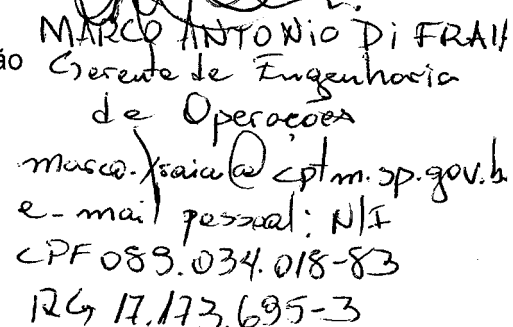 MARCO ANTONIO Di FRAI
ão Gerente de Engenharia
de Operações
marco.fraia@cptm.sp.gov.b
e-mail pessoal: N/I
CPF 089.034.018-83
RG 17.173.695-3